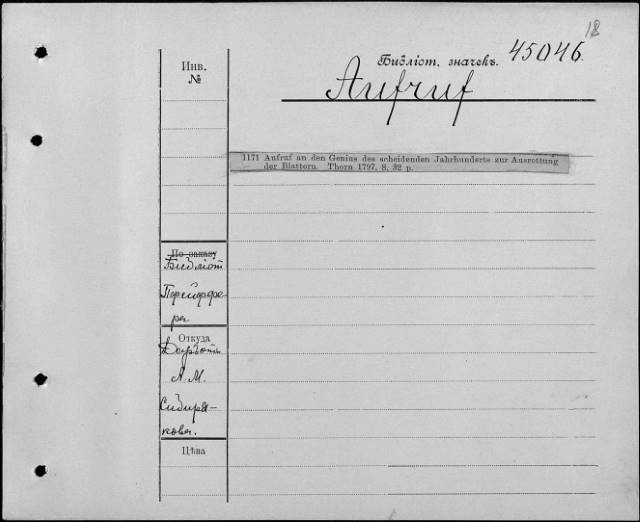 18
Библіот. значекъ. 45046.
Aufruf
Инв.
№
1171 Aufruf an den Genius des scheidenden Jahrhunderts zur Ausrottung
der Blattern. Thorn 1797. 8. 32 p.
По заказу
Библіот
Пфейффе-
ра
Откуда
Даръ отъ
А. М.
Сибиря-
кова.
Цѣна